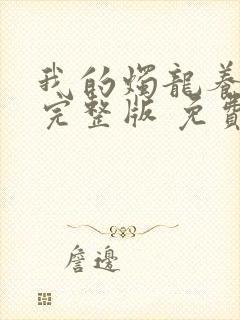 我的燭龍養
完整版 免費
詹邊